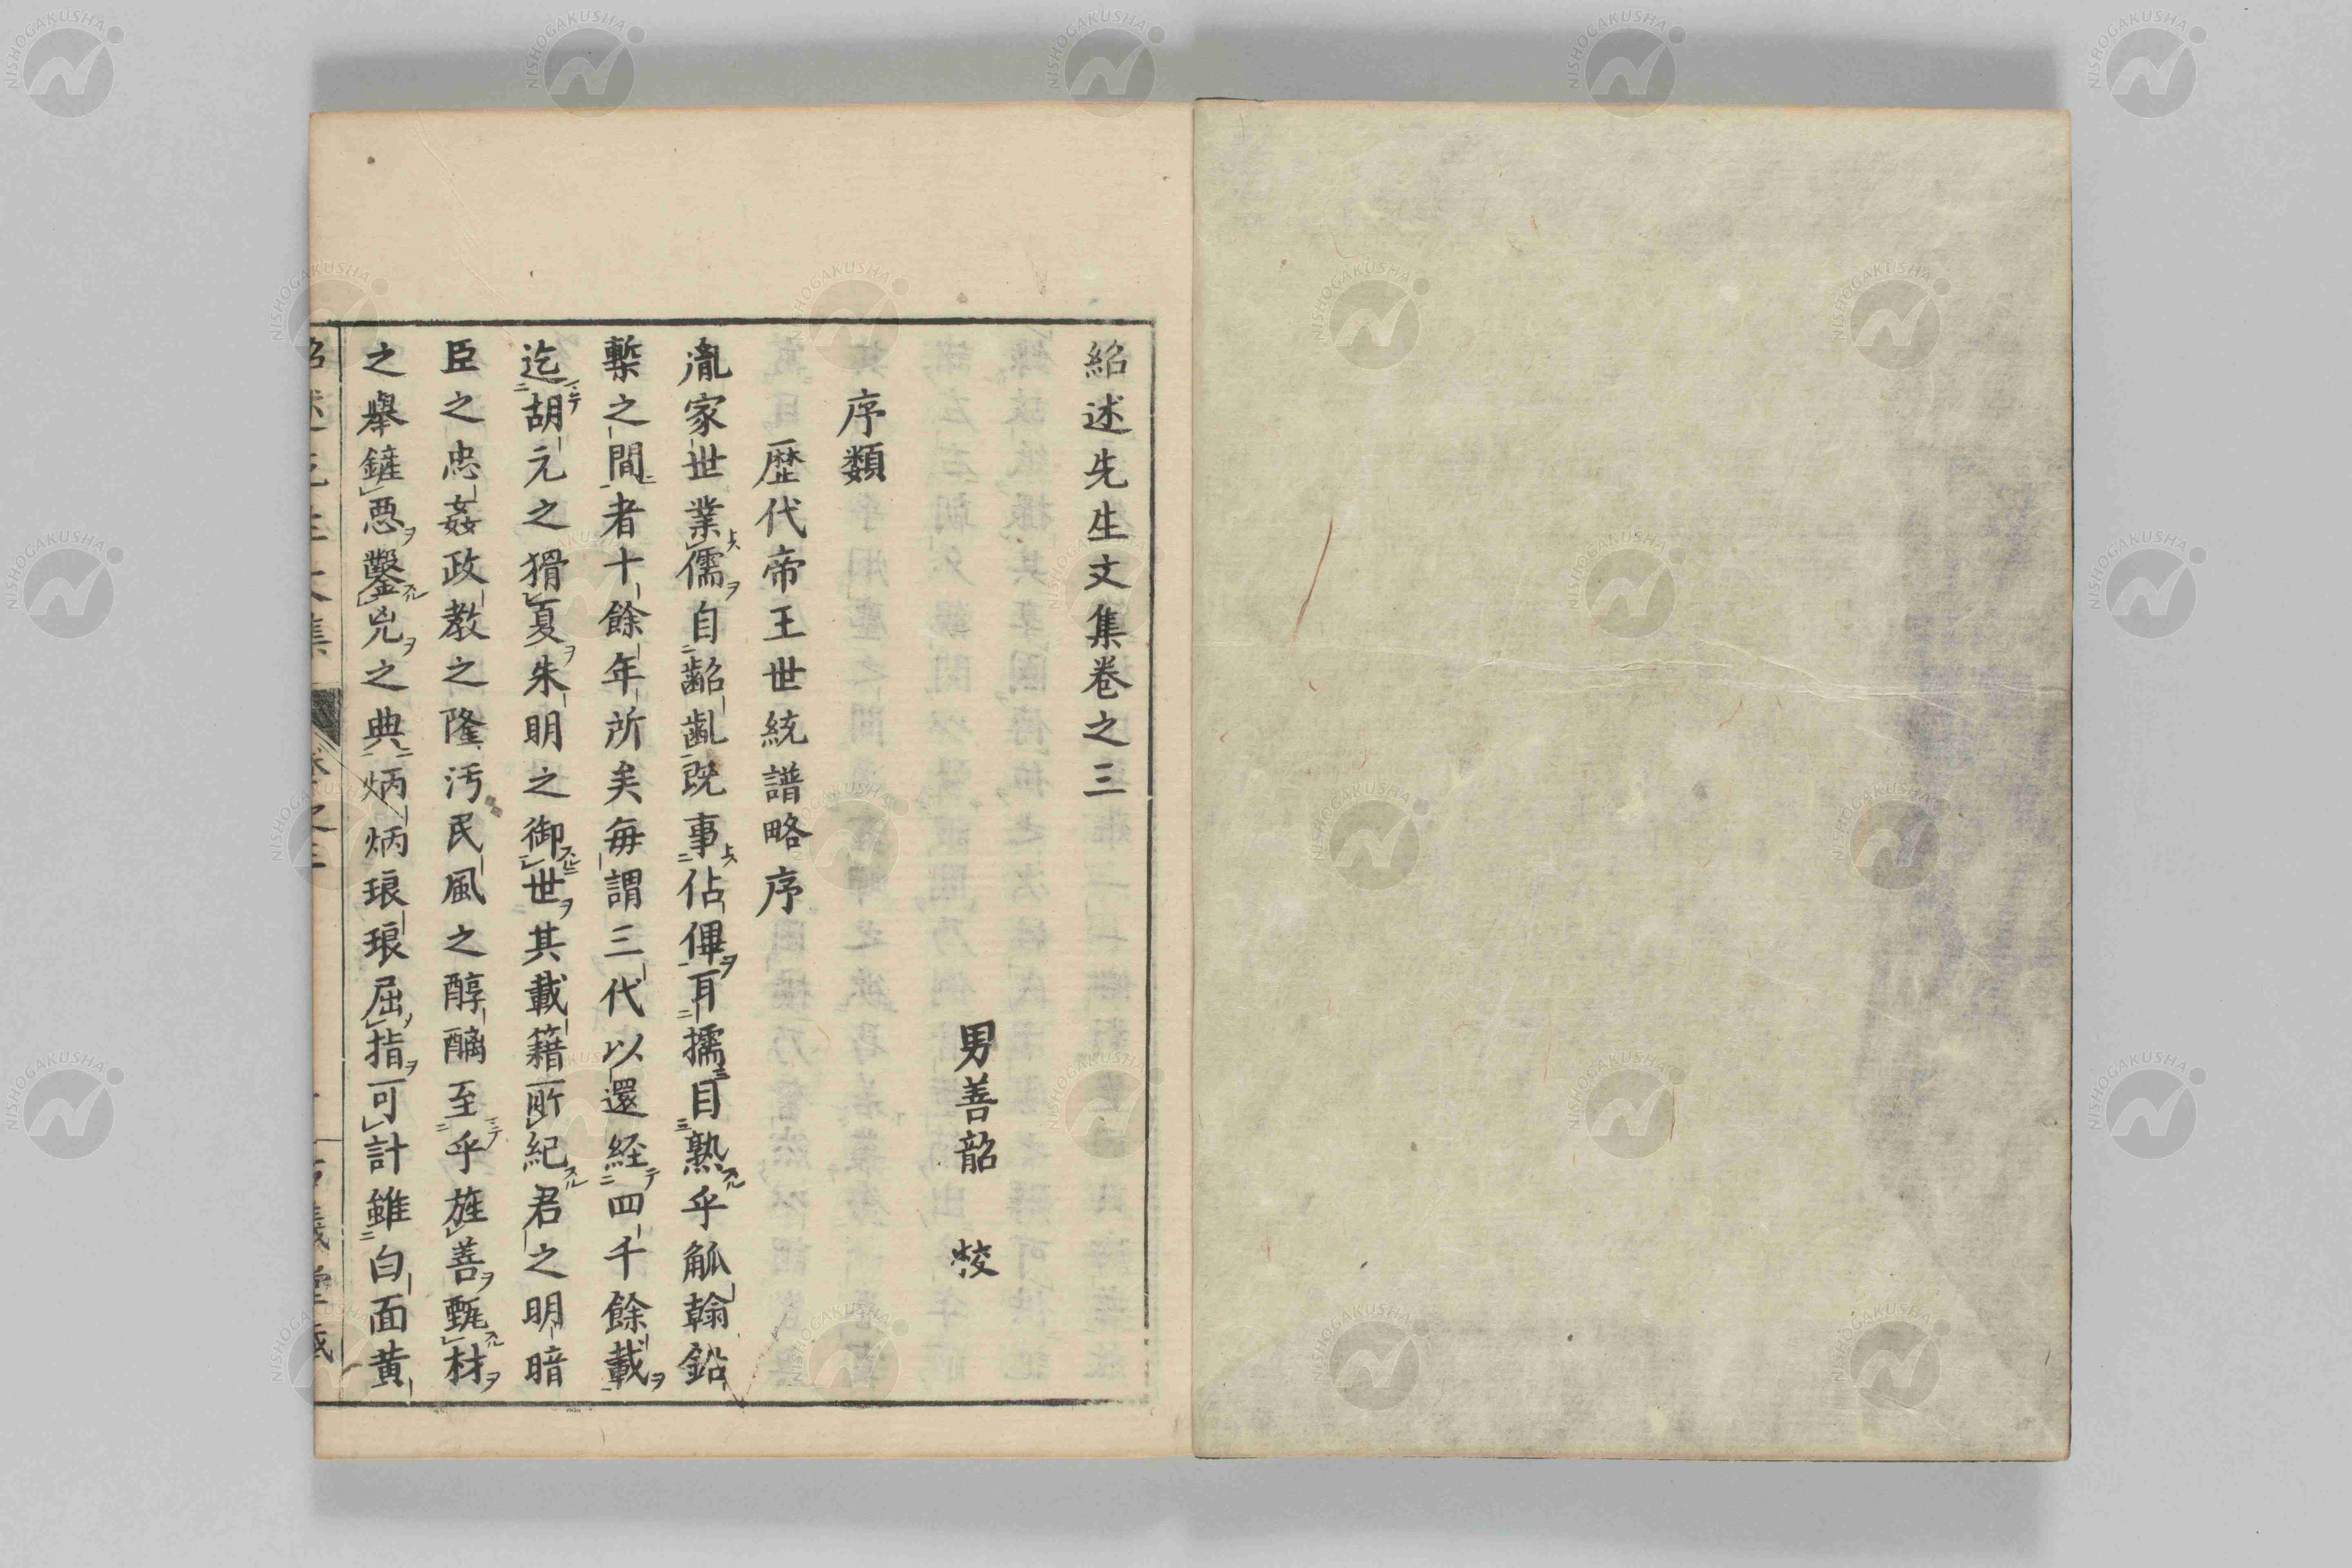 紹述先生文集卷之三
男善韶 挍
序類
歴代帝王世統譜略序
胤家世業儒自齠齔既事佔僤耳擩目熟乎觚翰鉛
槧之間者十餘年所矣每謂三代以還経四千餘載
迄胡元之猾夏朱明之御世其載籍所紀君之明暗
臣之忠姦政教之隆汚民風之醇醨至乎旌善甄材
之擧鏟惡鑿兇之典炳炳琅琅屈指可計雖白面黄
NISHOGAKUSHA